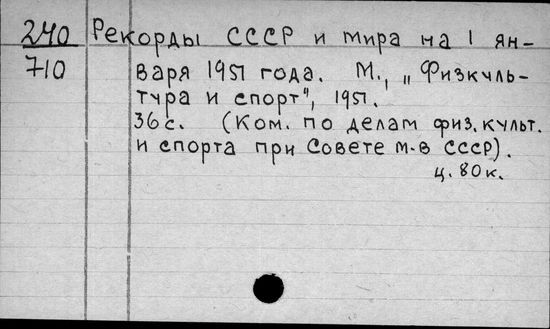 240 Рекорды СССР и мира на 1 ян-
710 варя 1951 года. М., „Физкуль-
тура и спорт", 1951.
36с. (Ком. по делам физ.культ.
и спорта при Совете М-в СССР).
ц. 80к.